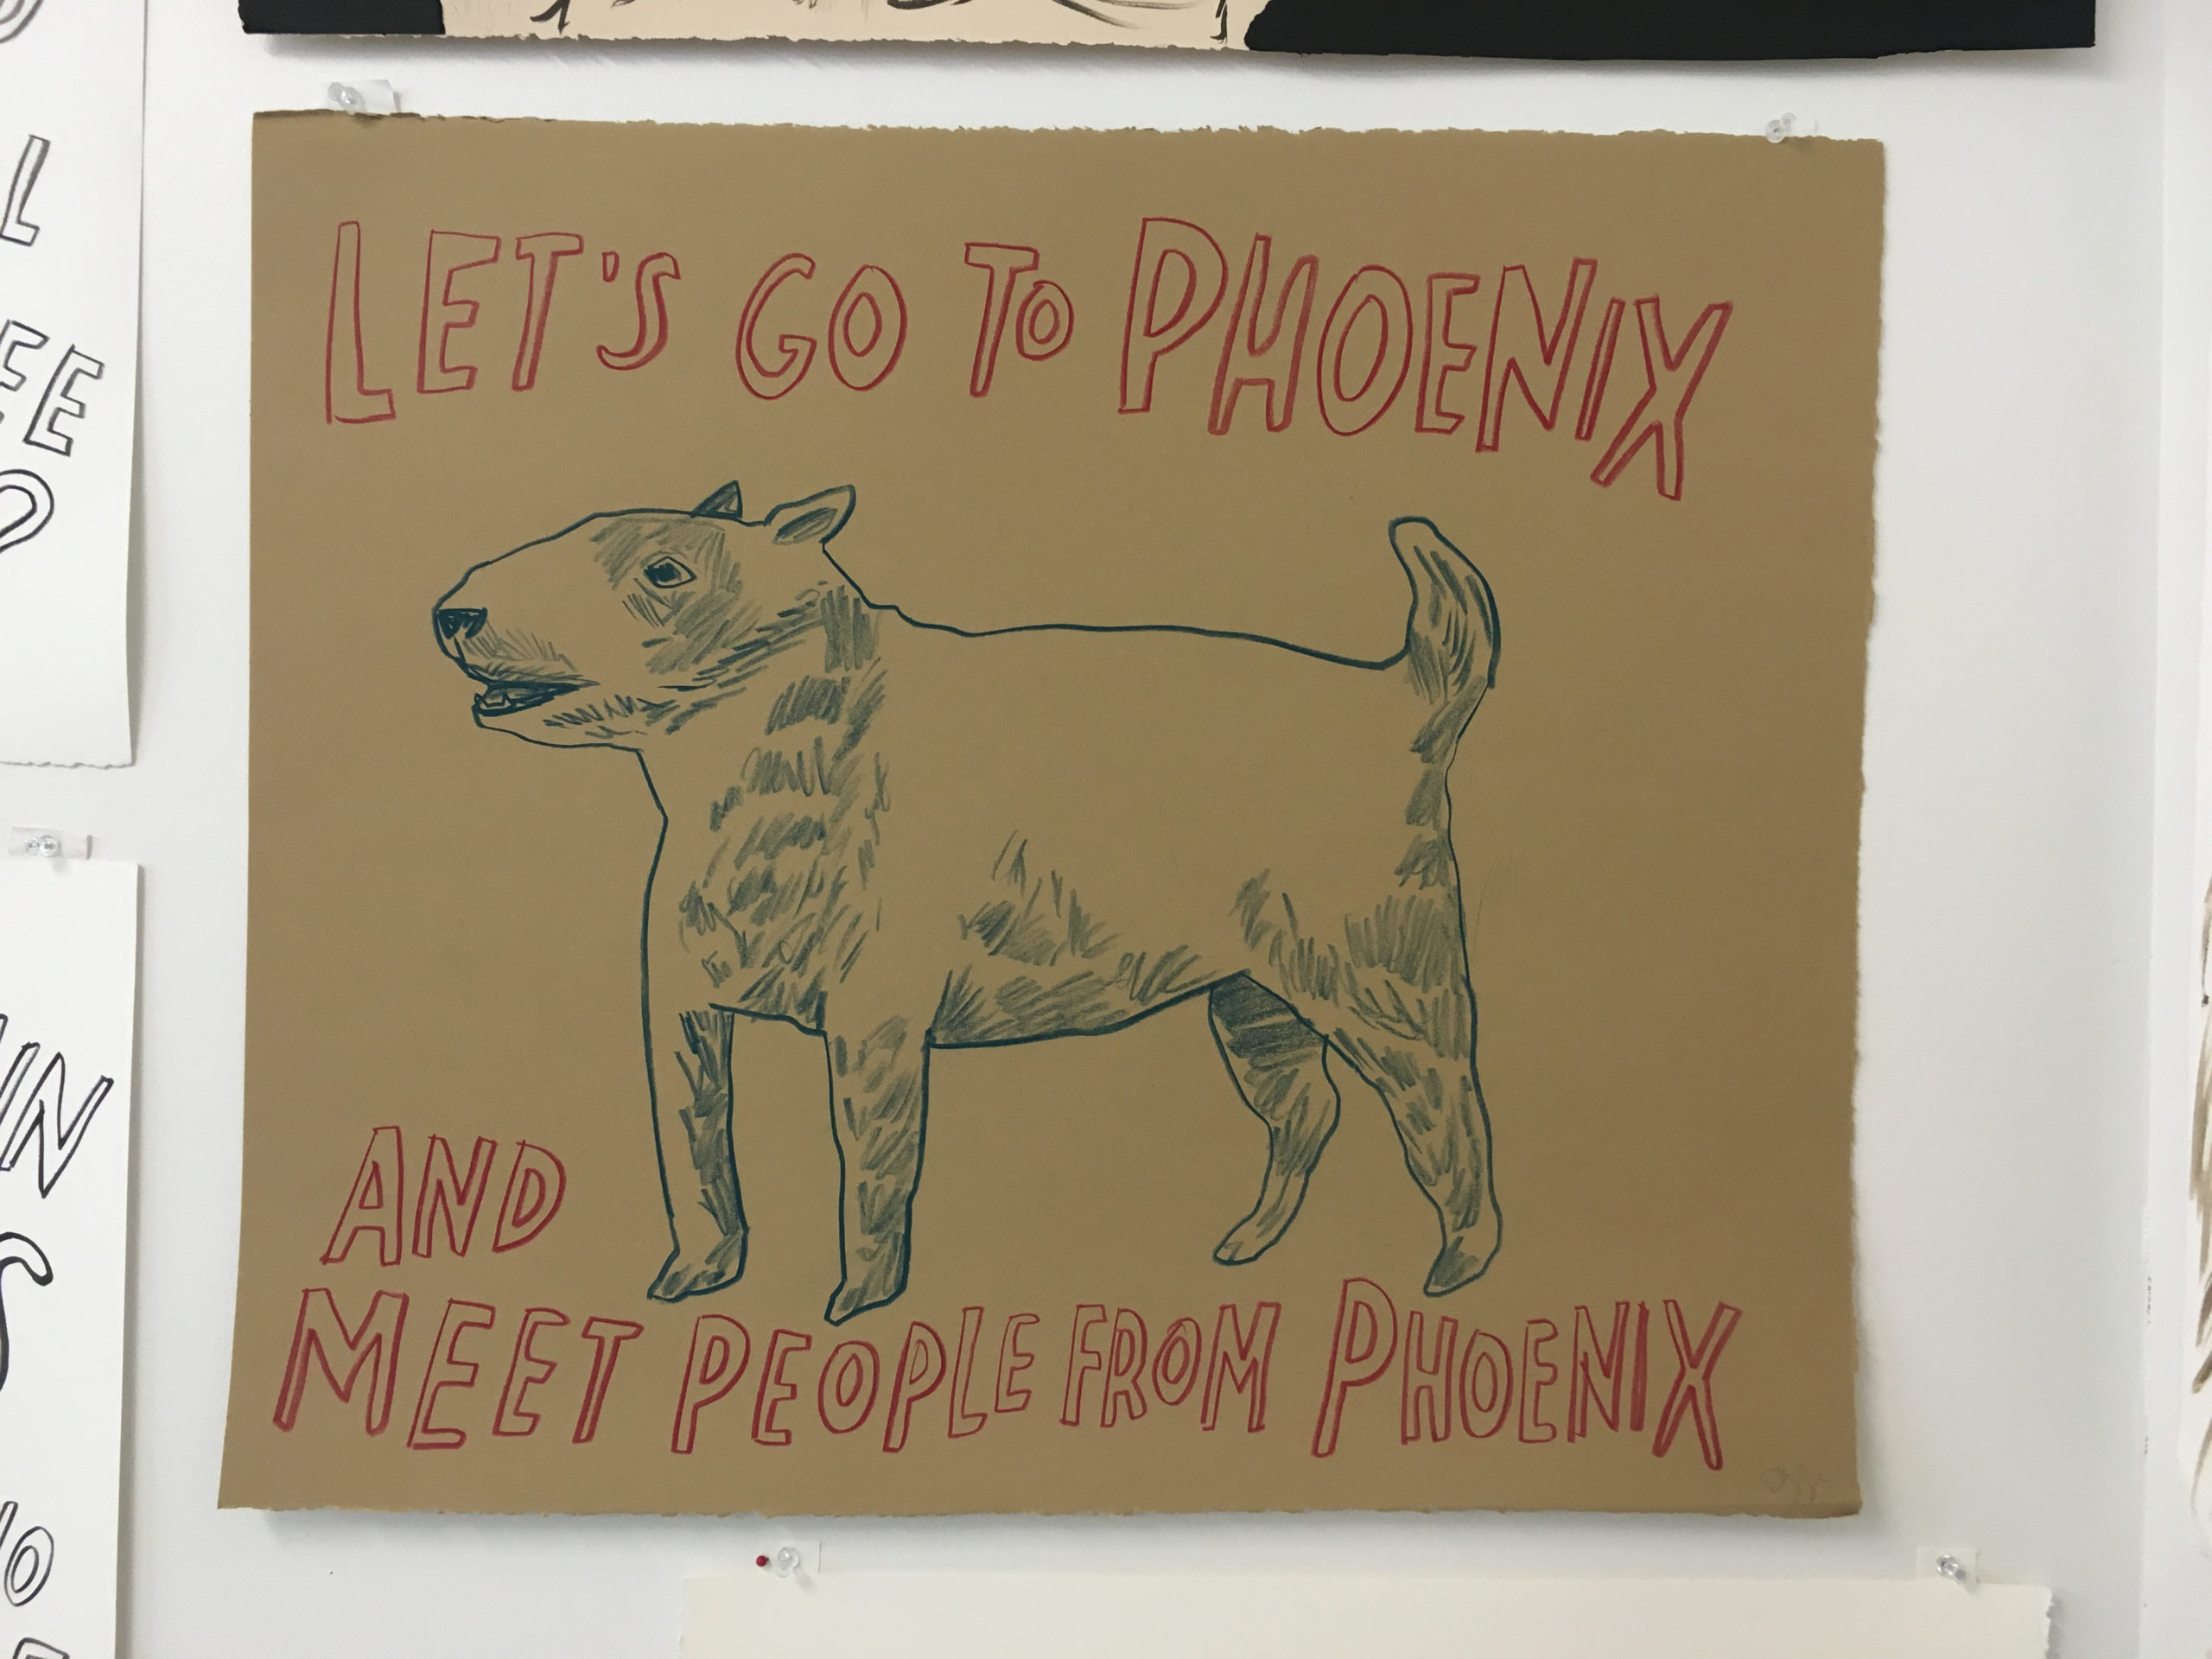 LET'S GO TO PHOENIX
AND
MEET PEOPLE FROM PHOENIX
L
EE
?
IN
S